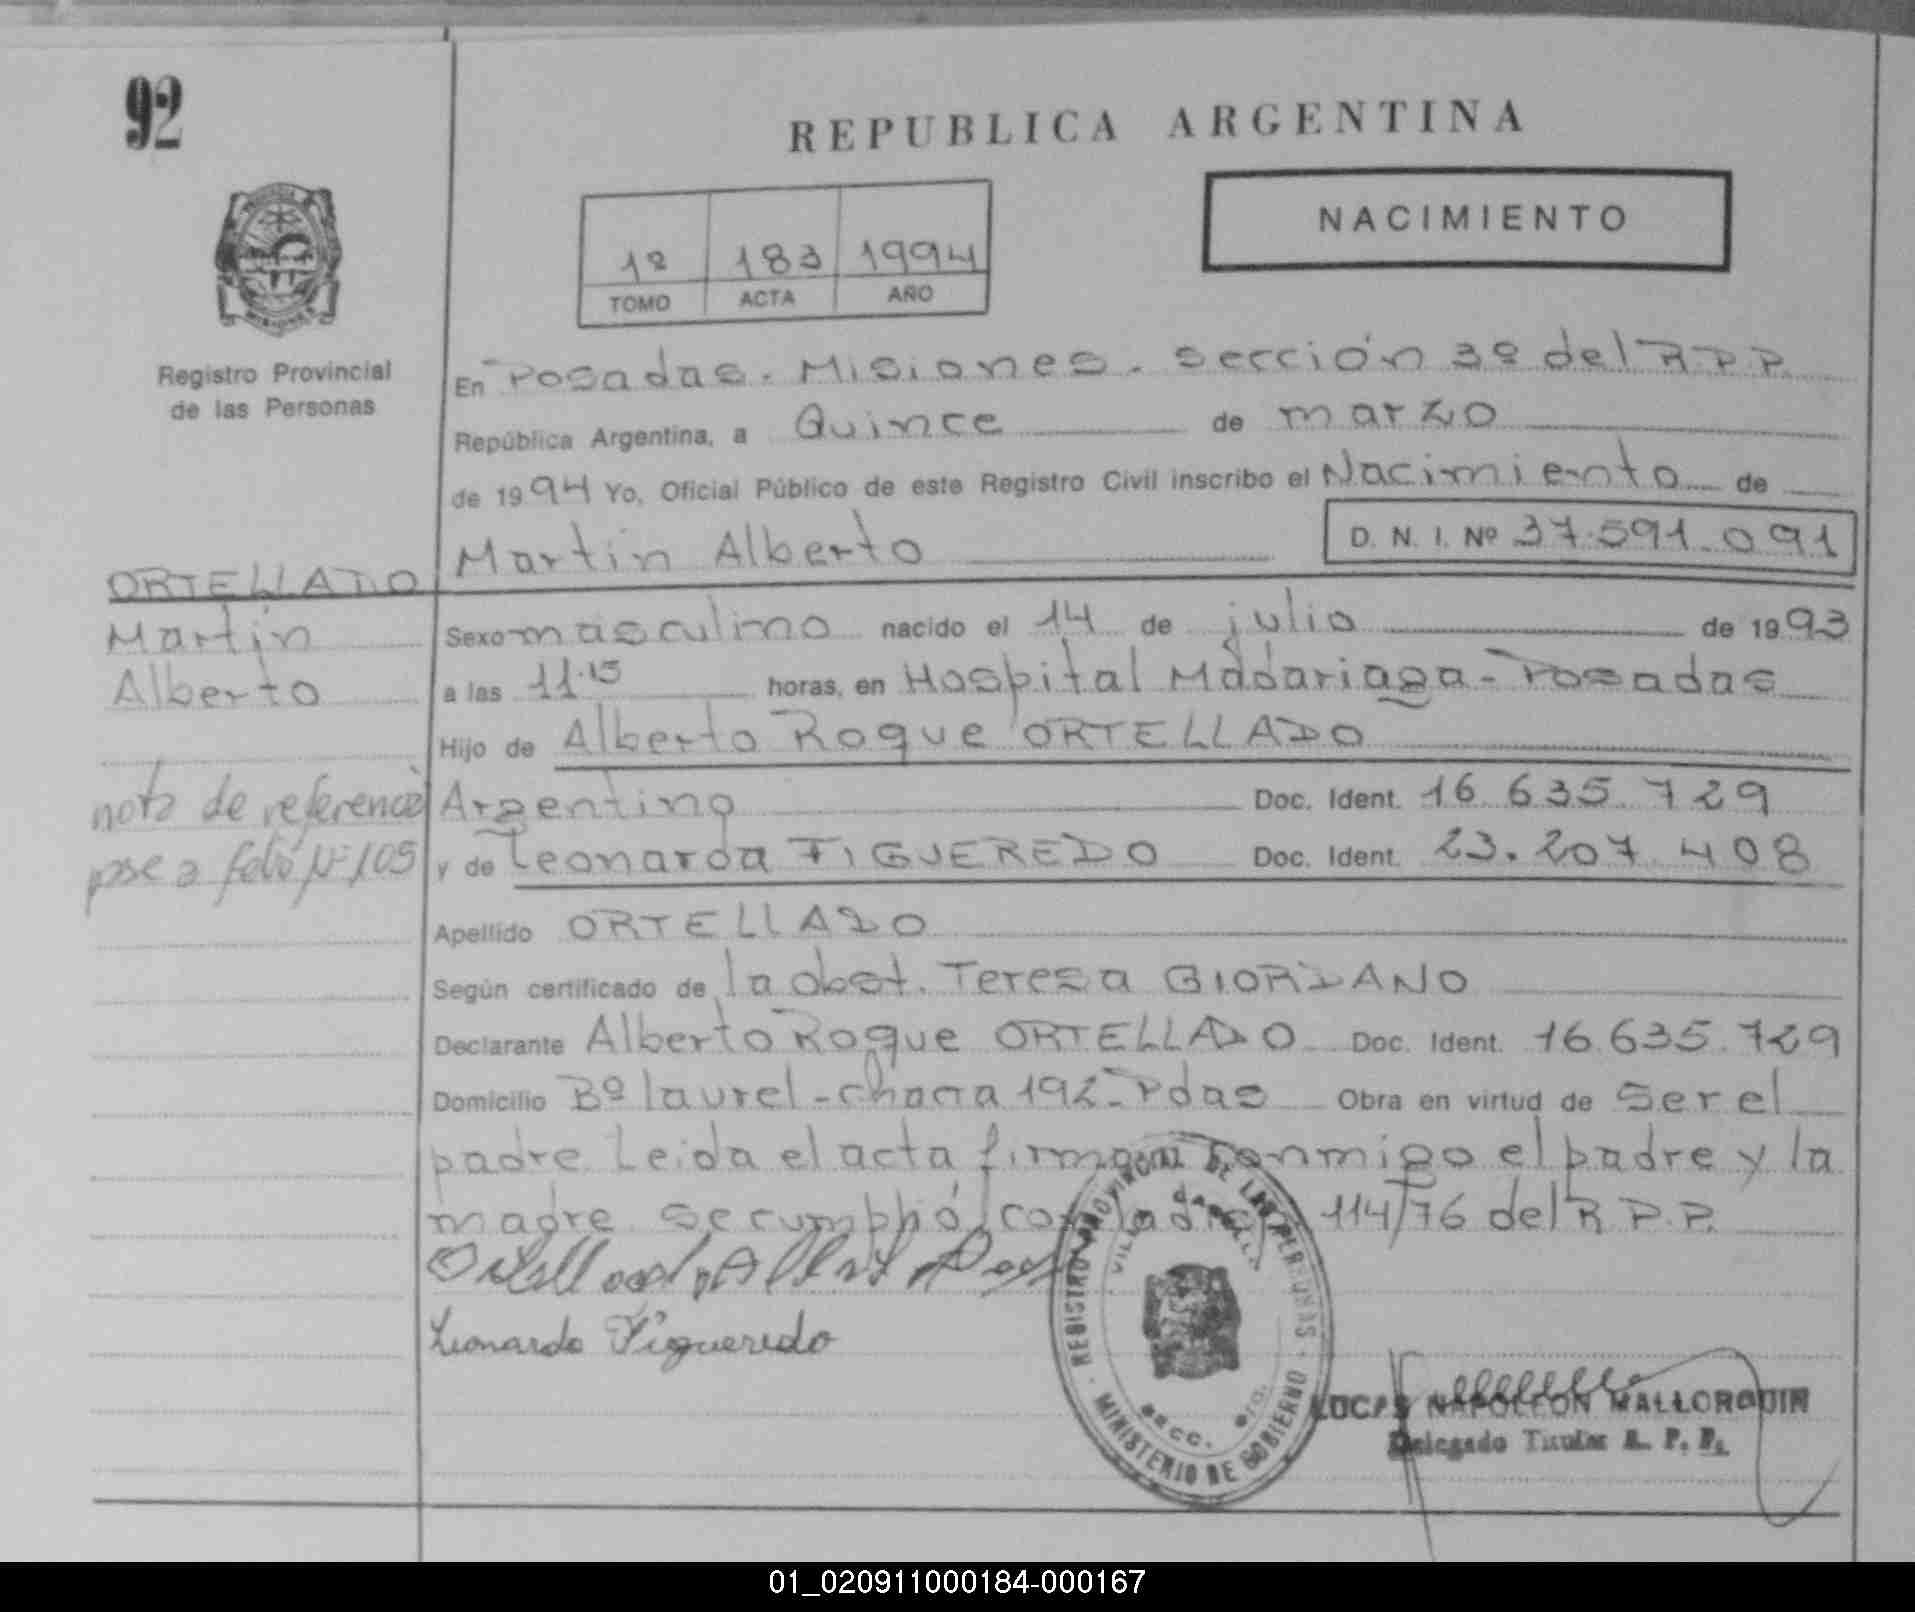 92
REPUBLICA ARGENTINA
NACIMIENTO
1º 183 1994
TOMO ACTA AÑO
Registro Provincial
de las Personas
En Posadas. Misiones. Sección 3º del R.P.P.
República Argentina, a Quince de marzo
de 1994 Yo, Oficial Público de este Registro Civil inscribo el Nacimiento de
Martin Alberto D. N. I. Nº 37.591.091
ORTELLADO
Martin
Alberto
Sexo masculino nacido el 14 de julio de 1993
a las 11.15 horas, en Hospital Madariaga - Posadas
Hijo de Alberto Roque ORTELLADO
nota de referencia
pse a folio Nº 105
Argentino Doc. Ident. 16.635.729
y de Leonarda FIGUEREDO Doc. Ident. 23.207.408
Apellido ORTELLADO
Según certificado de la obst. Teresa GIORDANO
Declarante Alberto Roque ORTELLADO Doc. Ident. 16.635.729
Domicilio Bº laurel - chacra 192 - Pdas Obra en virtud de Ser el
padre Leida el acta firman conmigo el padre y la
madre se cumplió con la 114/76 del R.P.P.
Leonarda Figueredo
REGISTRO PROVINCIAL DE LAS PERSONAS
MINISTERIO DE GOBIERNO
LUCAS NAPOLEON MALLORQUIN
Delegado Titular R. P. P.
01_020911000184-000167